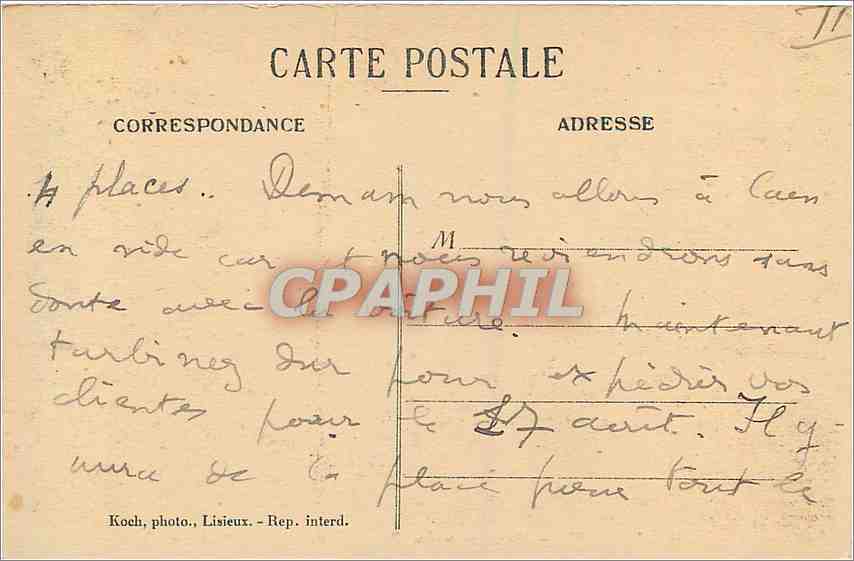 II
CARTE POSTALE
CORRESPONDANCE
ADRESSE
4 places.. Demain nous allons à Caen
M
en side car et nous reviendrons sans
doute avec la voiture. Maintenant
CPAPHIL
turbinez dur pour expédier vos
clientes pour le 27 août. Il y
aura de la place pour tout le
Koch, photo., Lisieux. - Rep. interd.